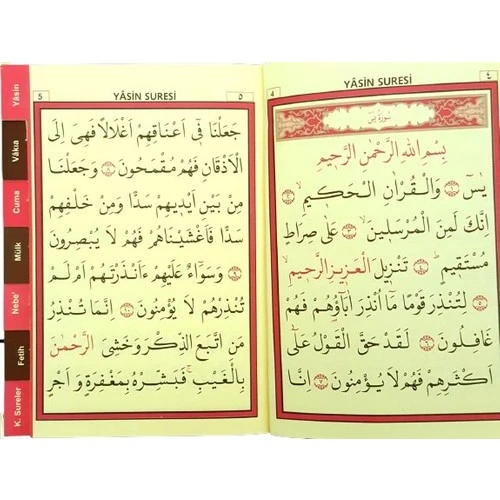 ٤
YÂSİN SURESİ
4
سُورَةُ يٰسٓ
بِسْمِ اللّٰهِ الرَّحْمٰنِ الرَّحِيمِ
يٰسٓ ﴿١﴾ وَالْقُرْاٰنِ الْحَكِيمِ ﴿٢﴾
اِنَّكَ لَمِنَ الْمُرْسَلِينَ ﴿٣﴾ عَلٰى صِرَاطٍ
مُسْتَقِيمٍ ﴿٤﴾ تَنْزِيلَ الْعَزِيزِ الرَّحِيمِ
﴿٥﴾ لِتُنْذِرَ قَوْمًا مَٓا اُنْذِرَ اٰبَٓاؤُ۬هُمْ فَهُمْ
غَافِلُونَ ﴿٦﴾ لَقَدْ حَقَّ الْقَوْلُ عَلٰٓى
اَكْثَرِهِمْ فَهُمْ لَا يُؤْمِنُونَ ﴿٧﴾ اِنَّا
5
YÂSİN SURESİ
٥
جَعَلْنَا فِٓي اَعْنَاقِهِمْ اَغْلَالًا فَهِيَ اِلَى
الْاَذْقَانِ فَهُمْ مُقْمَحُونَ ﴿٨﴾ وَجَعَلْنَا
مِنْ بَيْنِ اَيْدِيهِمْ سَدًّا وَمِنْ خَلْفِهِمْ
سَدًّا فَاَغْشَيْنَاهُمْ فَهُمْ لَا يُبْصِرُونَ
﴿٩﴾ وَسَوَٓاءٌ عَلَيْهِمْ ءَاَنْذَرْتَهُمْ اَمْ لَمْ
تُنْذِرْهُمْ لَا يُؤْمِنُونَ ﴿١٠﴾ اِنَّمَا تُنْذِرُ
مَنِ اتَّبَعَ الذِّكْرَ وَخَشِيَ الرَّحْمٰنَ
بِالْغَيْبِۚ فَبَشِّرْهُ بِمَغْفِرَةٍ وَاَجْرٍ
Yâsin
Vâkıa
Cuma
Mülk
Nebe'
Fetih
K. Sureler